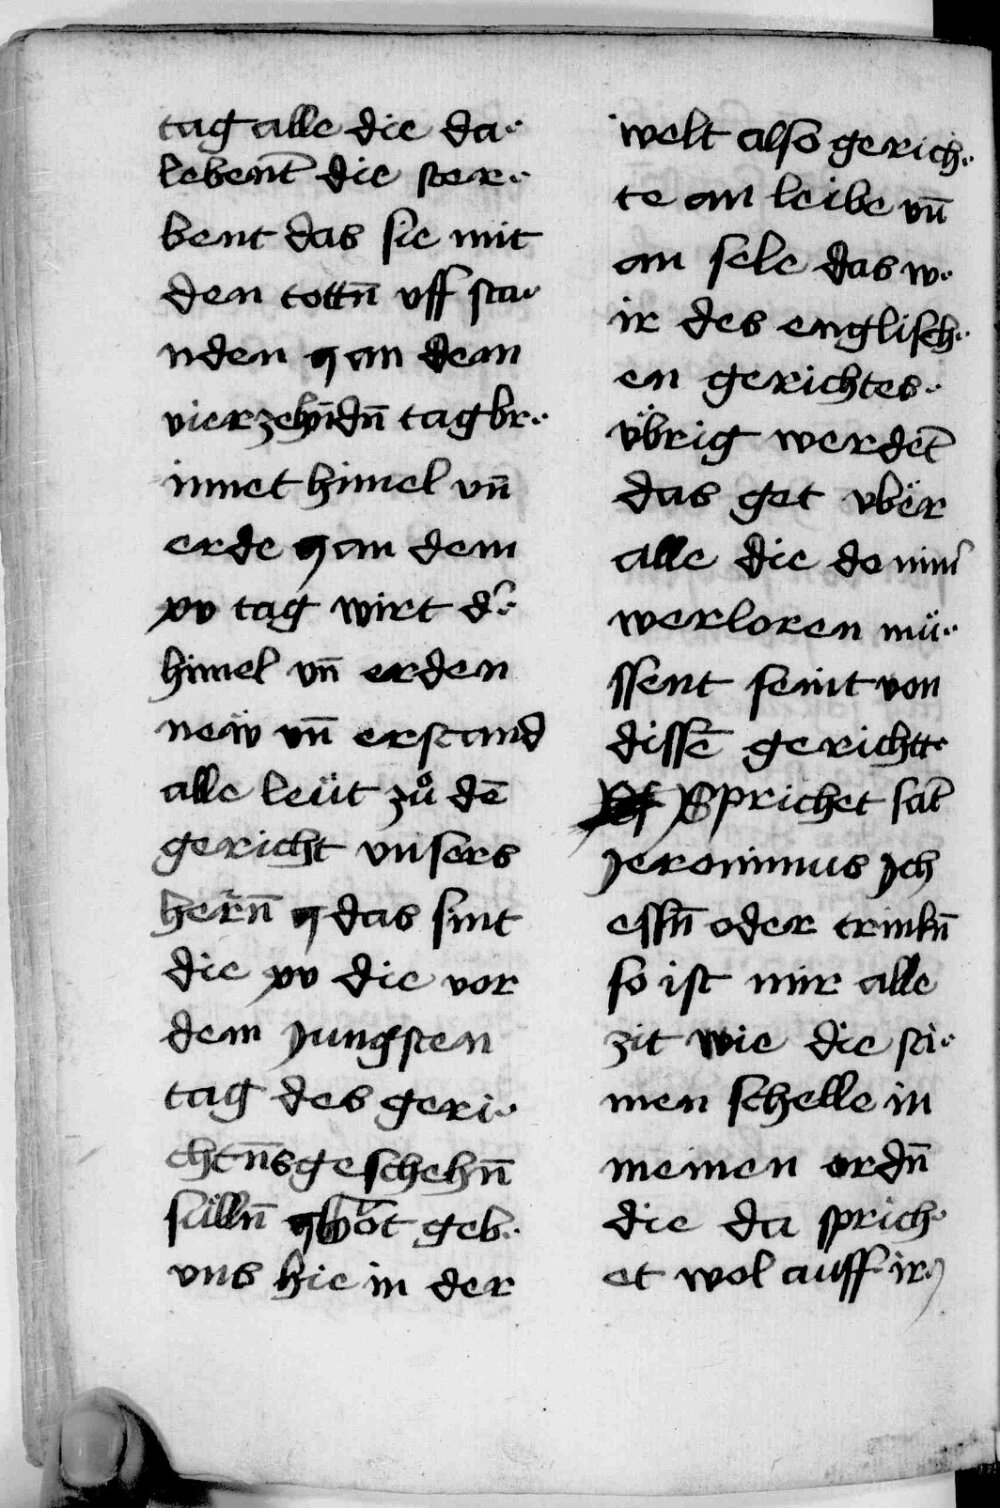 tag alle die da
lebent die ster
bent das sie mit
den tottn̄ vff sta
nden an dem
vierzehn̄dn̄ tag br
innet himel vn̄
erde an dem
xv tag wirt d'
himel vn̄ erden
neẅ vn̄ erstand
alle leüt zů dē
gericht vnsers
hern̄ das sint
die xv die vor
dem Jungsten
tag des geri
chtn̄s geschehn̄
süllñ got geb
vns hie in der
welt also gerich
te an leibe vn̄
an sele das w
ir des englisch
en gerichtes
v̈brig werdēt
das get vbër
alle die do nim̄
werloren mü
ssent seint von
dissē gericht
Sprichet sāt
Jeronimus Jch
essn̄ oder trinkn̄
so ist mir alle
zit wie die sti
men schelle in
meinen ordn̄
die da sprich
et wol auff ir